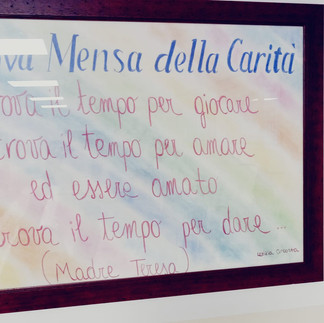 ova Mensa della Carità
rova il tempo per giocare
trova il tempo per amare
ed essere amato
rova il tempo per dare ...
(Madre Teresa)